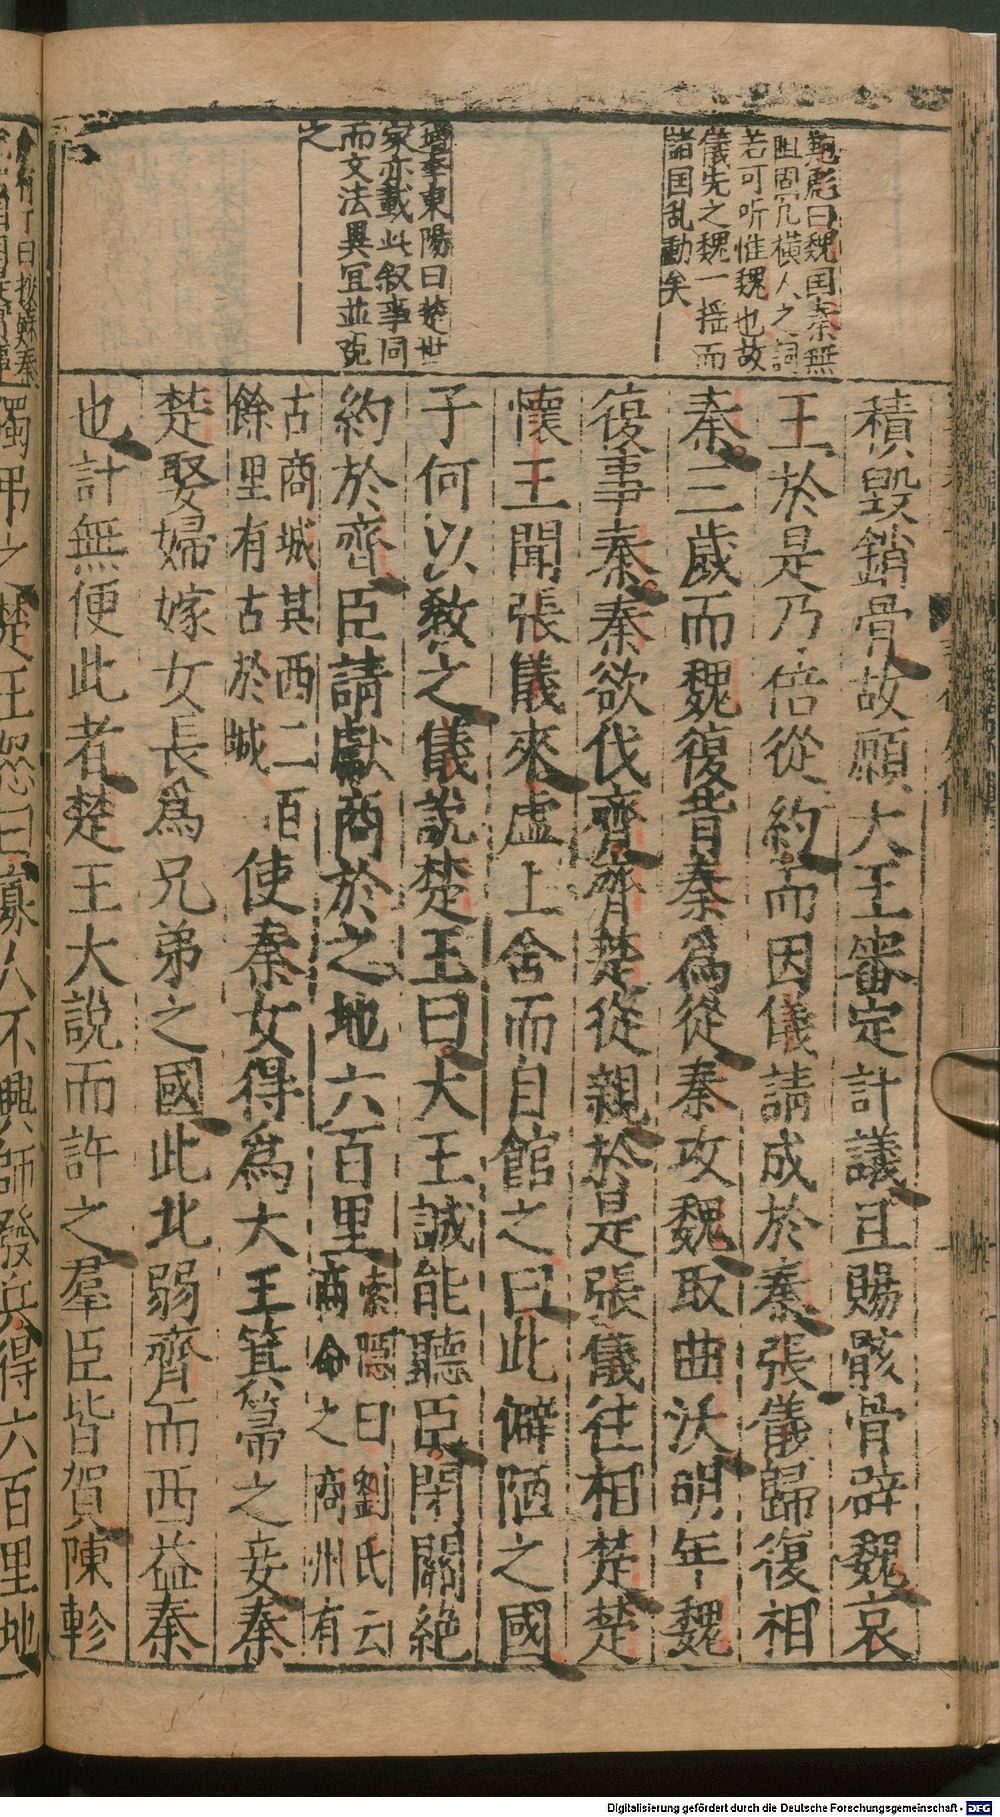 鮑彪曰魏国秦無
阻固凡橫人之詞
若可听惟魏也故
儀先之魏一搖而
諸国乱動矣
增李東陽曰楚世
家亦載此叙事同
而文法異冝並玩
之
積毀銷骨故願大王審定計議且賜骸骨辟魏哀
王於是乃倍從約而因儀請成於秦張儀歸復相
秦三歲而魏復背秦爲從秦攻魏取曲沃明年魏
復事秦秦欲伐齊齊楚從親於是張儀往相楚楚
懷王聞張儀來虛上舍而自館之曰此僻陋之國
子何以敎之儀說楚王曰大王誠能聽臣閉關絕
約於齊臣請獻商於之地六百里索隱曰劉氏云商命之商州有
古商城其西二百餘里有古於城使秦女得爲大王箕箒之妾秦
楚娶婦嫁女長爲兄弟之國此北弱齊而西益秦
也計無便此者楚王大說而許之羣臣皆賀陳軫
獨弔之楚王怒曰寡人不興師發兵得六百里地
Digitalisierung gefördert durch die Deutsche Forschungsgemeinschaft - DFG